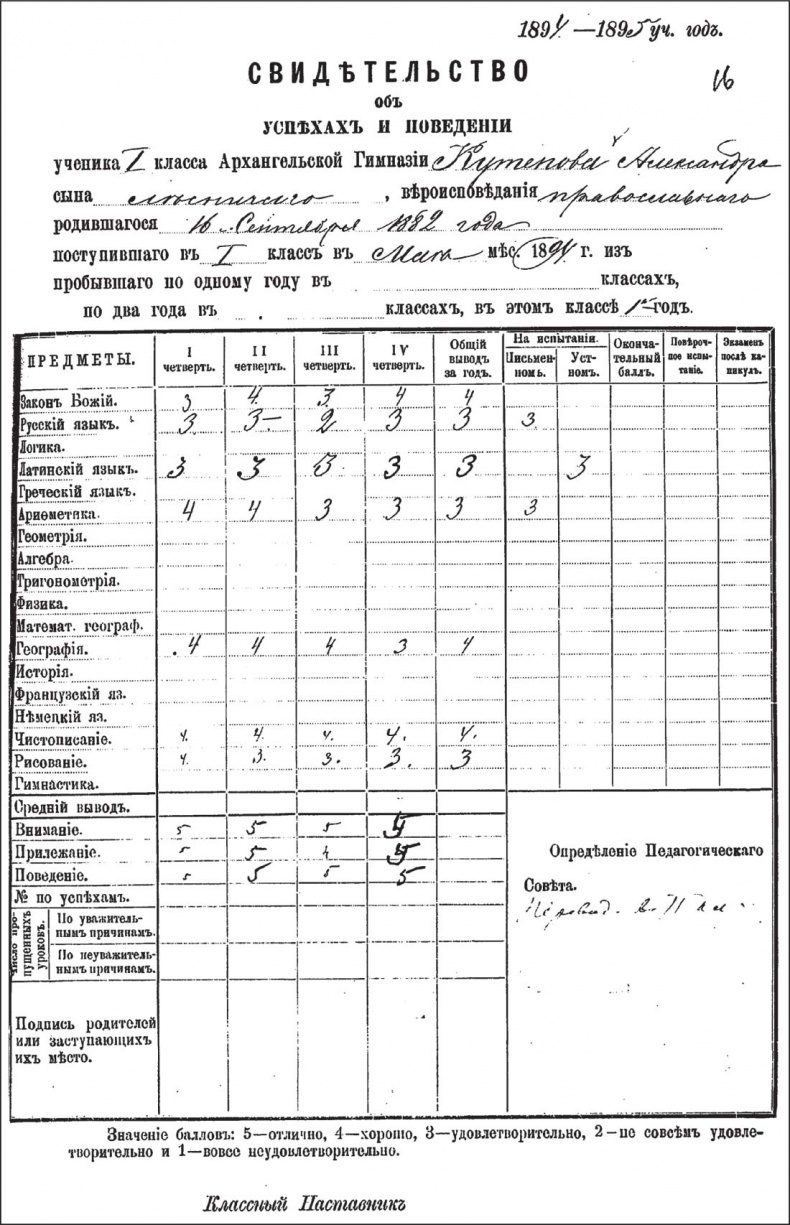 1894.—1895 уч. годъ.
16
СВИДѢТЕЛЬСТВО
объ
УСПѢХАХЪ И ПОВЕДЕНІИ
ученика I класса Архангельской Гимназіи Кутепова Александра
сына , вѣроисповѣданія православнаго
родившагося 16 Сентября 1882 года
поступившаго въ I классъ въ мѣс. 1894 г. изъ
пробывшаго по одному году въ классахъ,
по два года въ . классахъ, въ этомъ классѣ 1 годъ.
ПРЕДМЕТЫ. I четверть. II четверть. III четверть. IV четверть. Общій выводъ за годъ. На испытаніи. Письменномъ. Устномъ. Окончательный баллъ. Повѣрочное испытаніе. Экзаменъ послѣ каникулъ.
Законъ Божій. 3 4 3 4 4
Русскій языкъ. 3 3– 2 3 3 3
Логика.
Латинскій языкъ. 3 3 3 3 3 3
Греческій языкъ.
Ариѳметика. 4 4 3 3 3 3
Геометрія.
Алгебра.
Тригонометрія.
Физика.
Математ. географ.
Географія. 4 4 4 3 4
Исторія.
Французскій яз.
Нѣмецкій яз.
Чистописаніе. 4. 4. 4. 4. 4.
Рисованіе. 4. 3. 3. 3. 3
Гимнастика.
Средній выводъ.
Вниманіе. 5 5 5 5
Прилежаніе. 5 5 4 5
Поведеніе. 5 5 5 5
№ по успѣхамъ.
Число пропущенныхъ уроковъ.
По уважительнымъ причинамъ.
По неуважительнымъ причинамъ.
Подпись родителей
или заступающихъ
ихъ мѣсто.
Опредѣленіе Педагогическаго
Совѣта.
II
Значеніе балловъ: 5—отлично, 4—хорошо, 3—удовлетворительно, 2—не совсѣмъ удовле-
творительно и 1—вовсе неудовлетворительно.
Классный Наставникъ